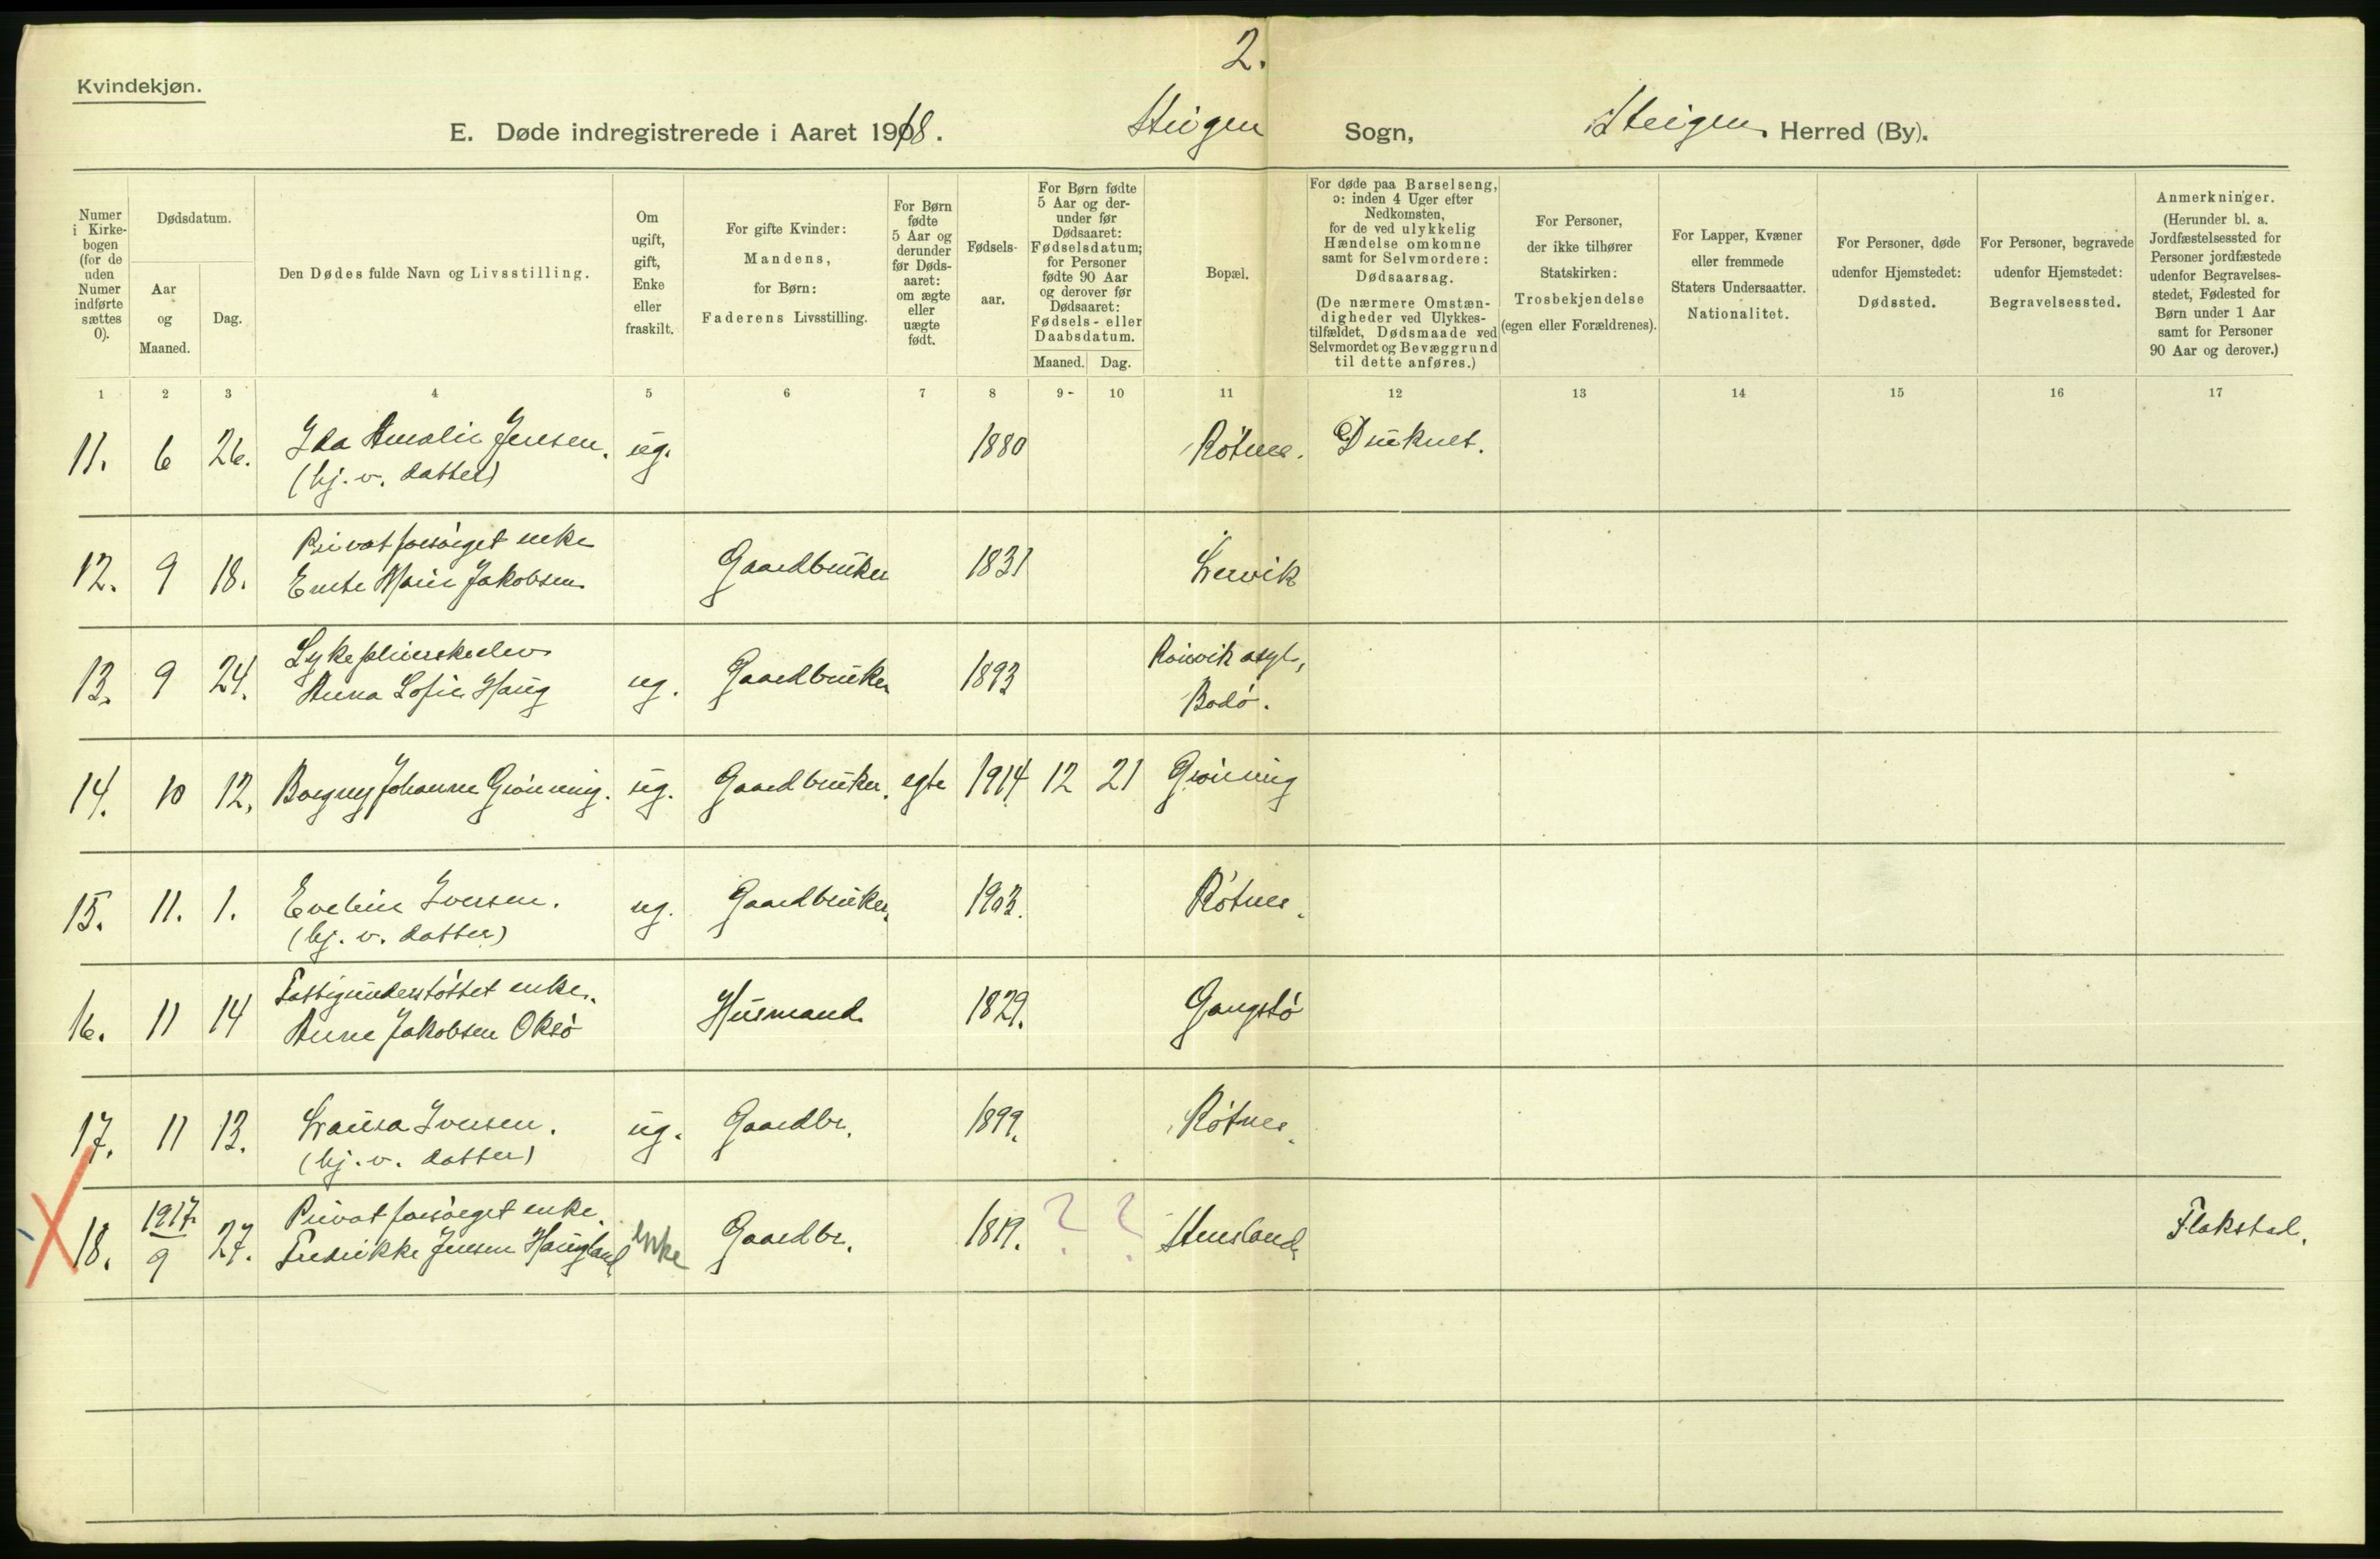 2.
Kvindekjøn.
E. Døde indregistrerede i Aaret 1918. Steigen Sogn, Steigen Herred (By).
Numer i Kirkebogen (for de uden Numer indførte sættes 0).
Dødsdatum.
Aar og Maaned.
Dag.
Den Dødes fulde Navn og Livsstilling.
Om ugift, gift, Enke eller fraskilt.
For gifte Kvinder: Mandens, for Børn: Faderens Livsstilling.
For Børn fødte 5 Aar og derunder før Dødsaaret: om ægte eller uægte født.
Fødselsaar.
For Børn fødte 5 Aar og derunder før Dødsaaret: Fødselsdatum; for Personer fødte 90 Aar og derover før Dødsaaret: Fødsels- eller Daabsdatum.
Maaned. Dag.
Bopæl.
For døde paa Barselseng, ɔ: inden 4 Uger efter Nedkomsten, for de ved ulykkelig Hændelse omkomne samt for Selvmordere: Dødsaarsag. (De nærmere Omstændigheder ved Ulykkestilfældet, Dødsmaade ved Selvmordet og Bevæggrund til dette anføres.)
For Personer, der ikke tilhører Statskirken: Trosbekjendelse (egen eller Forældrenes).
For Lapper, Kvæner eller fremmede Staters Undersaatter. Nationalitet.
For Personer, døde udenfor Hjemstedet: Dødssted.
For Personer, begravede udenfor Hjemstedet: Begravelsessted.
Anmerkninger. (Herunder bl. a. Jordfæstelsessted for Personer jordfæstede udenfor Begravelsesstedet, Fødested for Børn under 1 Aar samt for Personer 90 Aar og derover.)
1 2 3 4 5 6 7 8 9 - 10 11 12 13 14 15 16 17
11. 6 26. Ida Amalie Jensen. ug. 1880 Røtnes. Druknet.
(hj. v. datter)
Privat forsørget enke
12. 9 18. Ente Marie Jakobsen Gaardbruker 1831 Lervik
Sykepleierskeelev
13. 9 24. Anna Sofie Haug ug. Gaardbruker 1893 Rønvik asyl, Bodø.
14. 10 12. Borgny Johanne Grønning. ug. Gaardbruker. egte 1914 12 21 Grønning
15. 11. 1. Eveline Iversen. ug. Gaardbruker. 1903. Røtnes.
(hj. v. datter)
Fattigunderstøttet enke.
16. 11 14 Anne Jakobsen Oksø Husmand 1829. Gangstø
17. 11 13. Laura Iversen. ug. Gaardbr. 1899. Røtnes.
(hj. v. datter)
1917 Privat forsørget enke
18. 9 27. Fredrikke Jensen Haugland enke Gaardbr. 1819. ? ? Stensland Flakstad.